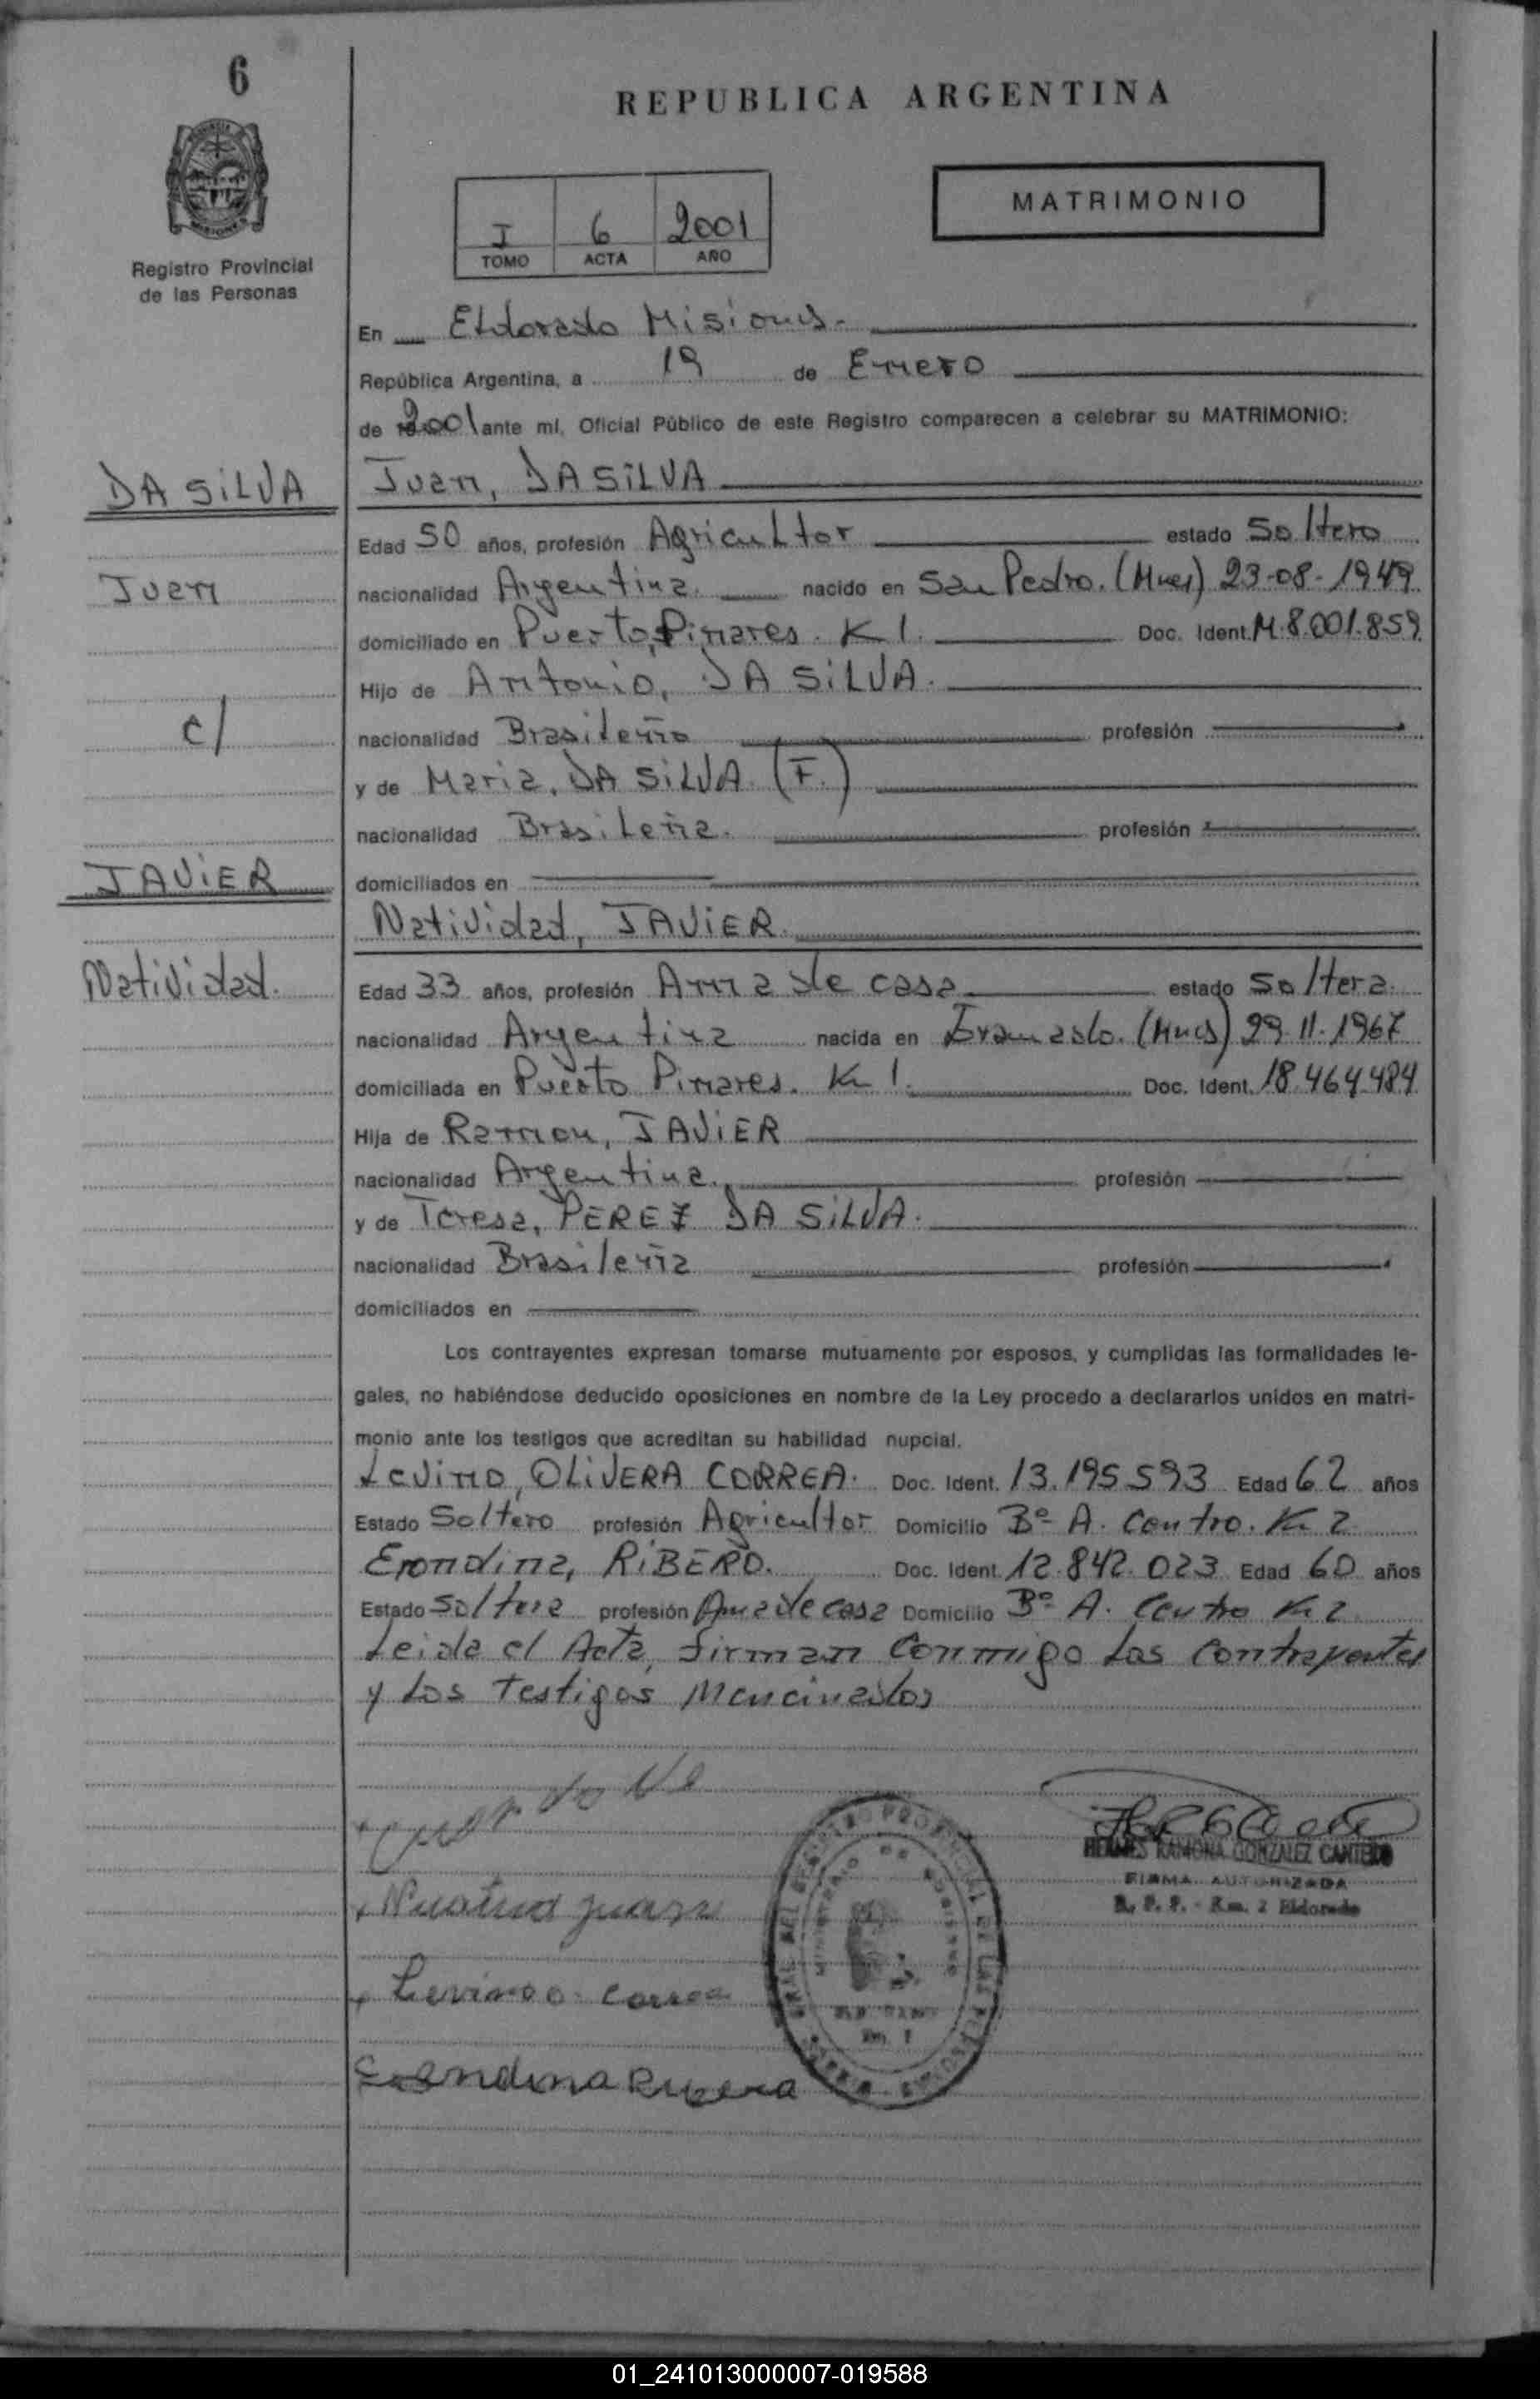 6
REPUBLICA ARGENTINA
MATRIMONIO
I 6 2001
TOMO ACTA AÑO
Registro Provincial
de las Personas
En Eldorado Misiones.
República Argentina, a 19 de Enero
de 2001 ante mí, Oficial Público de este Registro comparecen a celebrar su MATRIMONIO:
DA SILVA
Juan, DA SILVA
Edad 50 años, profesión Agricultor estado Soltero
Juan
nacionalidad Argentina. nacido en San Pedro. (Mnes) 23-08-1949
domiciliado en Puerto Pinares. K 1. Doc. Ident. M.8.001.859
Hijo de Antonio, DA SILVA.
c/
nacionalidad Brasileño profesión
y de Maria, DA SILVA (F.)
nacionalidad Brasileña. profesión
JAVIER
domiciliados en
Natividad, JAVIER
Natividad.
Edad 33 años, profesión Ama de casa estado Soltera.
nacionalidad Argentina nacida en (Mnes) 29.11.1967
domiciliada en Puerto Pinares. K 1. Doc. Ident. 18.464.484
Hija de Ramon, JAVIER
nacionalidad Argentina. profesión
y de Teresa, PEREZ DA SILVA.
nacionalidad Brasileña profesión
domiciliados en
Los contrayentes expresan tomarse mutuamente por esposos, y cumplidas las formalidades le-
gales, no habiéndose deducido oposiciones en nombre de la Ley procedo a declararlos unidos en matri-
monio ante los testigos que acreditan su habilidad nupcial.
Levino, OLIVERA CORREA. Doc. Ident. 13.195.593 Edad 62 años
Estado Soltero profesión Agricultor Domicilio Bº A. Centro. K 2
Erondina, RIBERO. Doc. Ident. 12.842.023 Edad 60 años
Estado Soltera profesión Ama de casa Domicilio Bº A. Centro K 2
Leida el Acta, firman conmigo los contrayentes
y los testigos Mencinados
HERMES RAMONA GONZALEZ CANTERO
FIRMA AUTORIZADA
R. P. P. - Km. 2 Eldorado
Levino o correa
Erendina Rivera
01_241013000007-019588